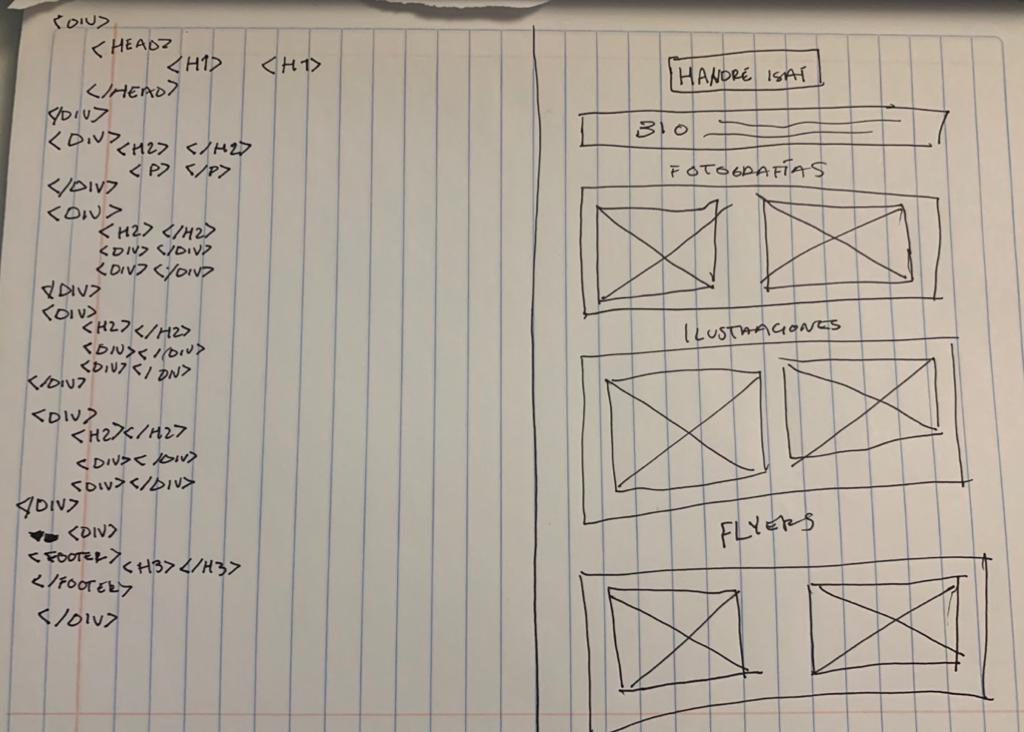 <DIV>
<HEAD>
<H1> <H1>
</HEAD>
</DIV>
<DIV>
<H2> </H2>
<P> </P>
</DIV>
<DIV>
<H2> </H2>
<DIV> </DIV>
<DIV> </DIV>
</DIV>
<DIV>
<H2> </H2>
<DIV> </DIV>
<DIV> </DIV>
</DIV>
<DIV>
<H2> </H2>
<DIV> </DIV>
<DIV> </DIV>
</DIV>
<DIV>
<FOOTER>
<H3> </H3>
</FOOTER>
</DIV>
HANDRE ISAÍ
BIO
FOTOGRAFÍAS
ILUSTRACIONES
FLYERS